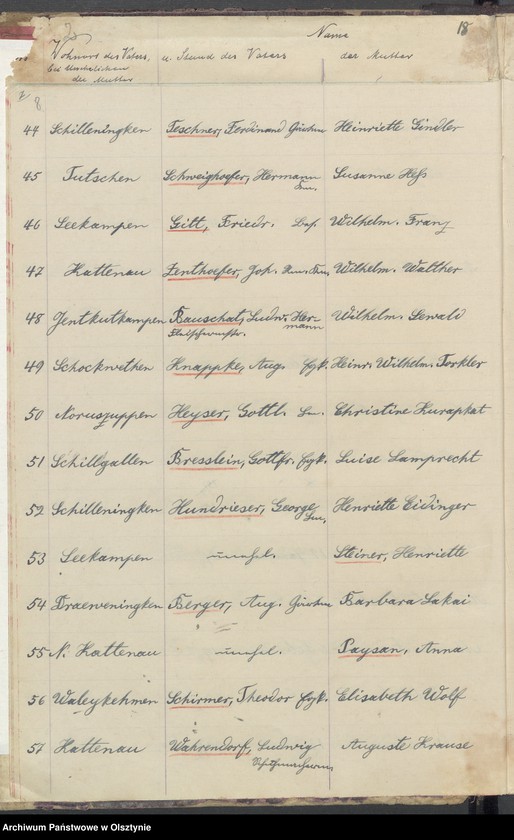 Name
18
Wohnort des Vaters, u. Stand des Vaters der Mutter
bei Unehelichen
der Mutter
44 Schilleningken Teschner, Ferdinand Heinriette Gindler
45 Tutschen Schweighoefer, Hermann Susanne Heß
46 Seekampen Gitt, Friedr. Wilhelm. Franz
47 Kattenau Zenthoefer, Joh. Wilhelm. Walther
48 Jentkutkampen Bauschat, Ludw. Her- Wilhelm. Sewald
mann
49 Schockwethen Knappke, Aug. Heinr. Wilhelm. Torkler
50 Noruszuppen Heyser, Gottl. Christine Kurapkat
51 Schillgallen Bresslein, Gottfr. Luise Lamprecht
52 Schilleningken Hundrieser, George Henriette Eidinger
53 Seekampen unehel. Steiner, Henriette
54 Draeweningken Berger, Aug. Barbara Lakai
55 N. Kattenau unehel. Paysan, Anna
56 Waleykehmen Schirmer, Theodor Elisabeth Wolf
57 Kattenau Wahrendorf, Ludwig Auguste Krause
Archiwum Państwowe w Olsztynie